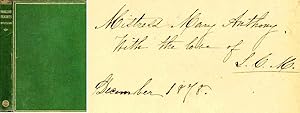 Mistress Mary Anthony,
With the love of
S. C. W.
December 1878.